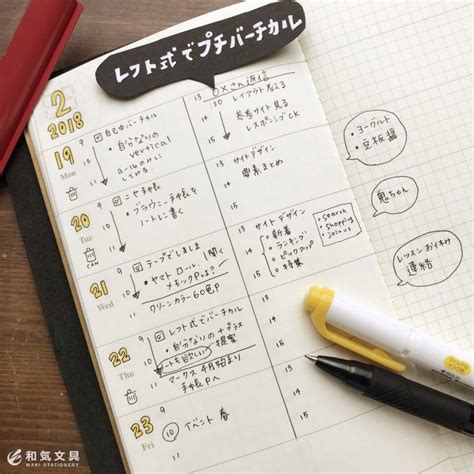 レフト式でプチバーチカル
2
2018
19
Mon
9
10
11
自己中バーチカル
・自分なりの
vertical
してみる
13
:30
○×さん返信
レイアウト考える
14
・参考サイト見る
レスポーシブCK
15
20
Tue
9
10
11
ニセ手帳
・ブラウニー手帳を
ノートに書く
13
サイトデザイン
14
要素まとめ
15
21
Wed
CAN
9
10
11
テープでしましま
・ヤマト ロール 聞く
メモックPは?
クリーンカラー60色P
13
サイトデザイン
14
・新着
・ランキング
・ピックアップ
・特集
・search
・shopping
・join us
15
22
Thu
9
10
11
レフト式でバーチカル
・自分なりの+プラス
提案
マークス4月始まり
手帳Pへ
13
14
15
23
Fri
9
10
11
イベント 春
13
14
15
・ヨーグルト
・豆板醤
鬼ちゃん
レッスンお休み
連絡
和気文具
WAKI STATIONERY